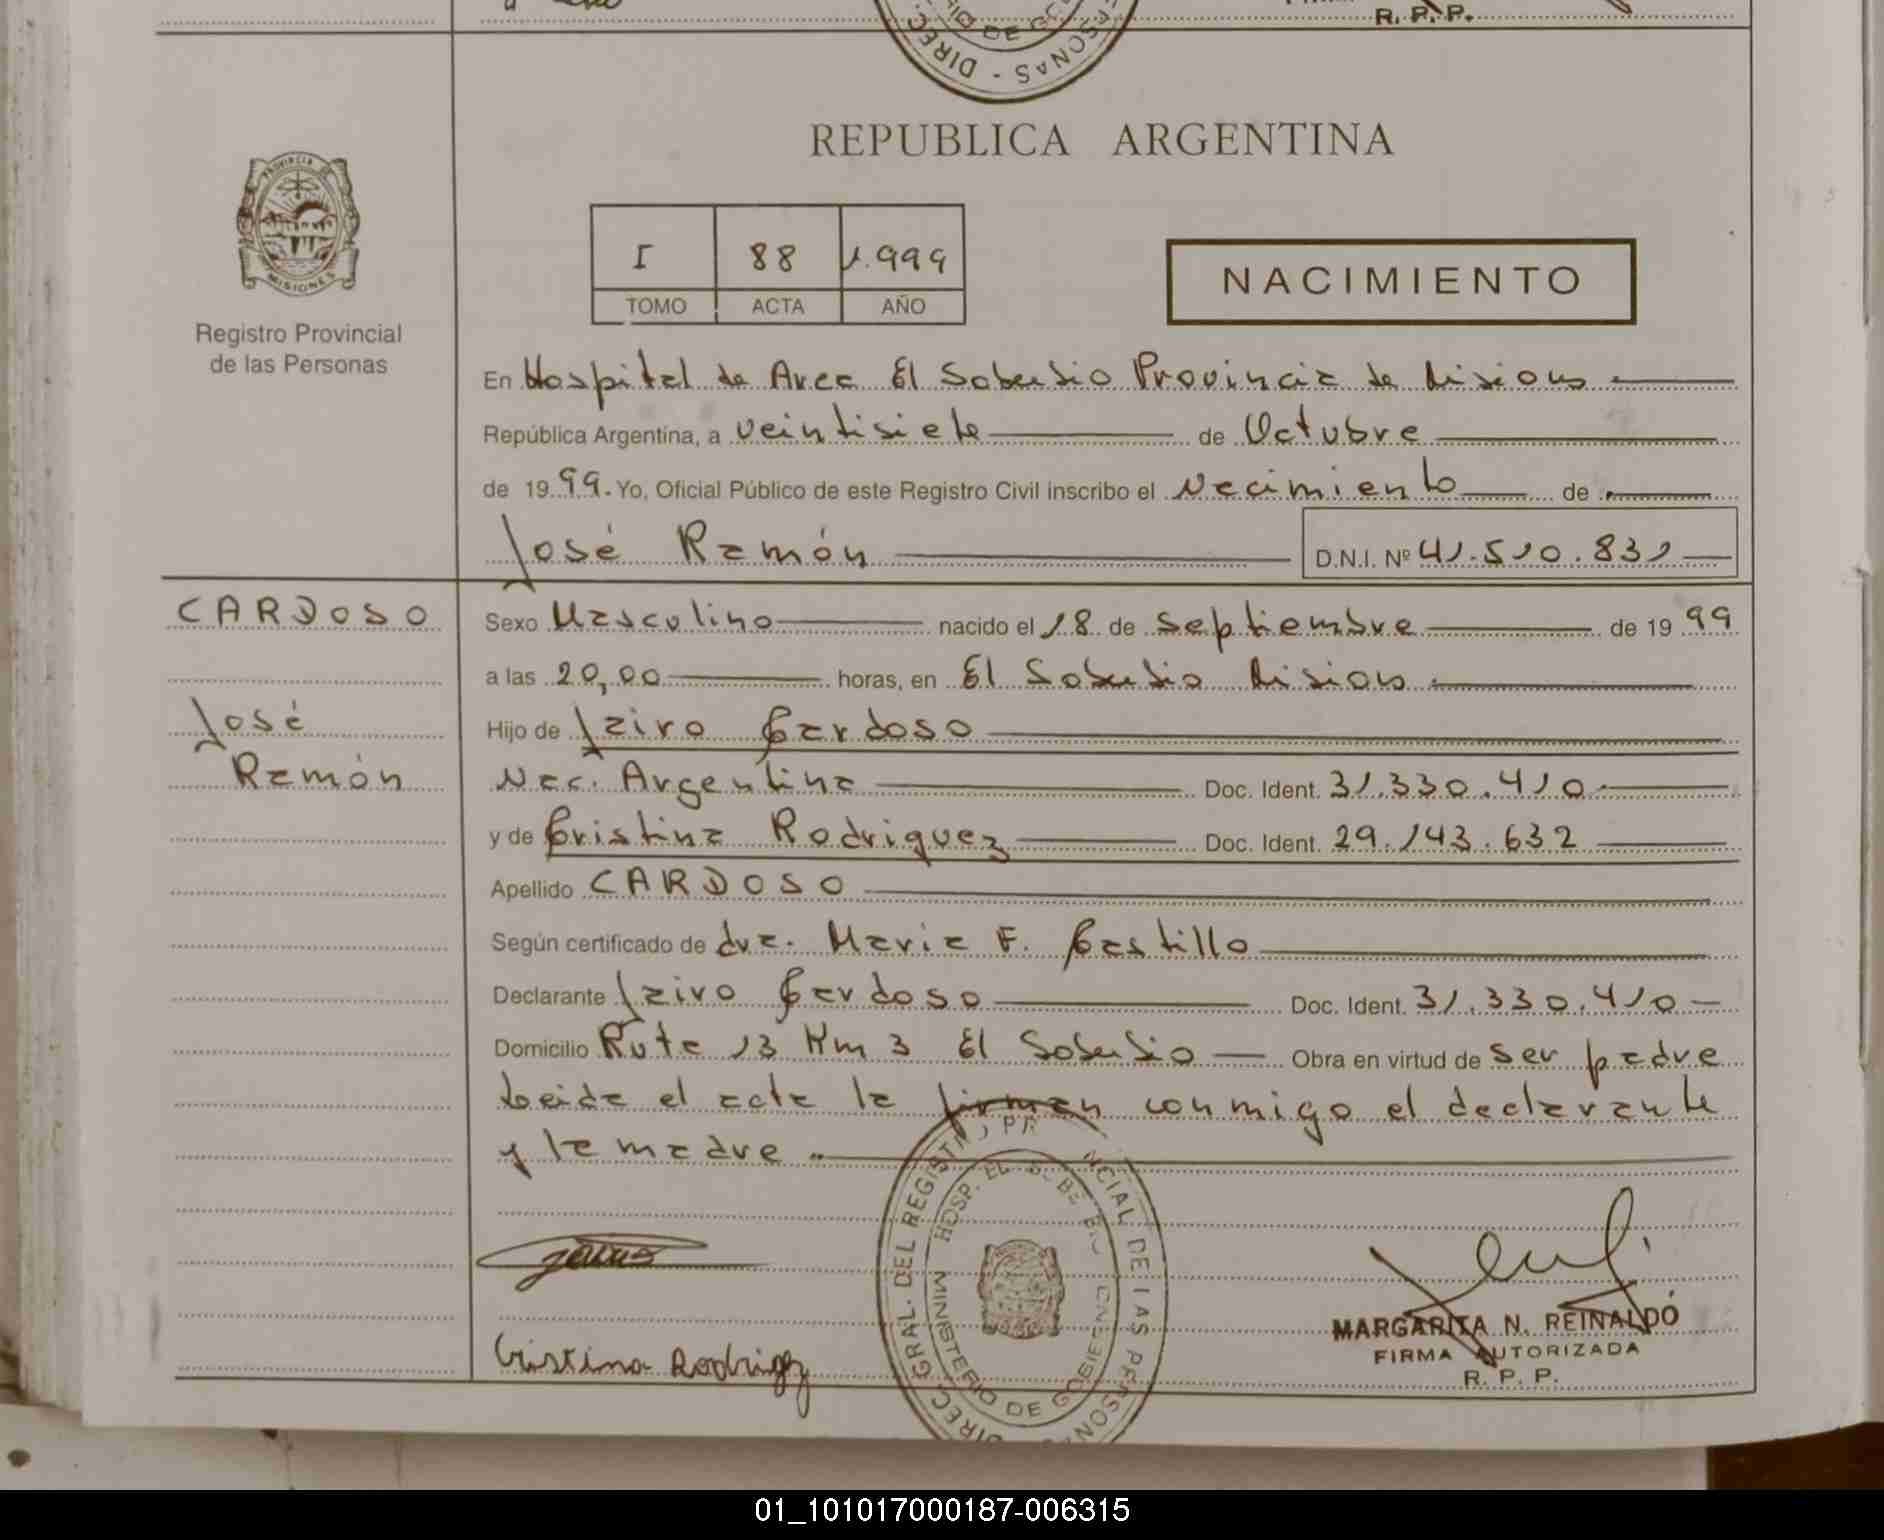 R. P. P.
DIREC
PROVINCIA DE
MISIONES
Registro Provincial
de las Personas
REPUBLICA ARGENTINA
I 88 1.999
TOMO ACTA AÑO
NACIMIENTO
En Hospital de Area El Soberbio Provincia de Misiones
República Argentina, a veintisiete de Octubre
de 1999. Yo, Oficial Público de este Registro Civil inscribo el Nacimiento de
José Ramón D.N.I. Nº 41.510.831
CARDOSO
José
Ramón
Sexo Masculino nacido el 18 de septiembre de 1999
a las 20,00 horas, en El Soberbio Misiones
Hijo de Jairo Cardoso
Nac. Argentina Doc. Ident. 31.330.410
y de Cristina Rodriguez Doc. Ident. 29.143.632
Apellido CARDOSO
Según certificado de dra. Maria F. Castillo
Declarante Jairo Cardoso Doc. Ident. 31.330.410
Domicilio Ruta 13 Km 3 El Soberbio Obra en virtud de ser padre
Leida el acta la firman conmigo el declarante
y la madre
DIREC. GRAL. DEL REGISTRO PROVINCIAL DE LAS PERSONAS
HOSP. EL SOBERBIO
MINISTERIO DE GOBIERNO
Cristina Rodriguez
MARGARITA N. REINALDO
FIRMA AUTORIZADA
R. P. P.
01_101017000187-006315